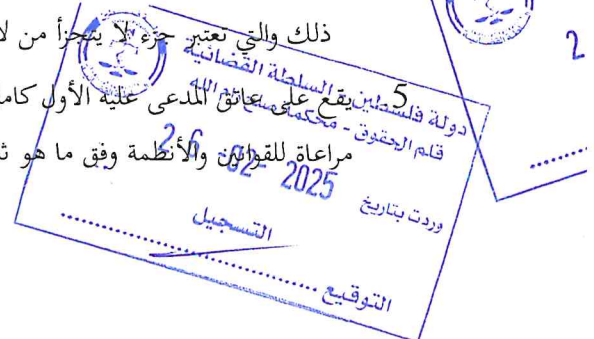 ذلك والتي تعتبر جزء لا يتجزأ من لا
5. يقع على عاتق المدعى عليه الأول كامل
مراعاة للقوانين والأنظمة وفق ما هو
دولة فلسطين - السلطة القضائية
قلم الحقوق - محكمة الله
وردت بتاريخ
26-02-2025
التسجيل
التوقيع
2